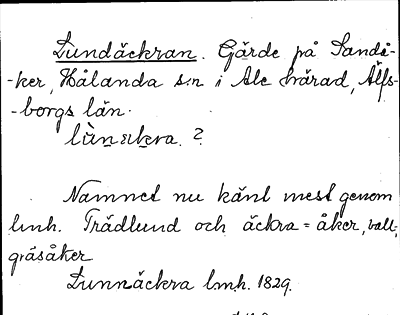 Lundäckran. Gärde på Sandå-
-ker, Hålanda s:n i Ale härad, Älfs-
-borgs län.
lùnækra. ?
Namnet nu känt mest genom
lmh. Trädlund och äckra = åker, vall,
gräsåker
Lunnäckra lmh. 1829.